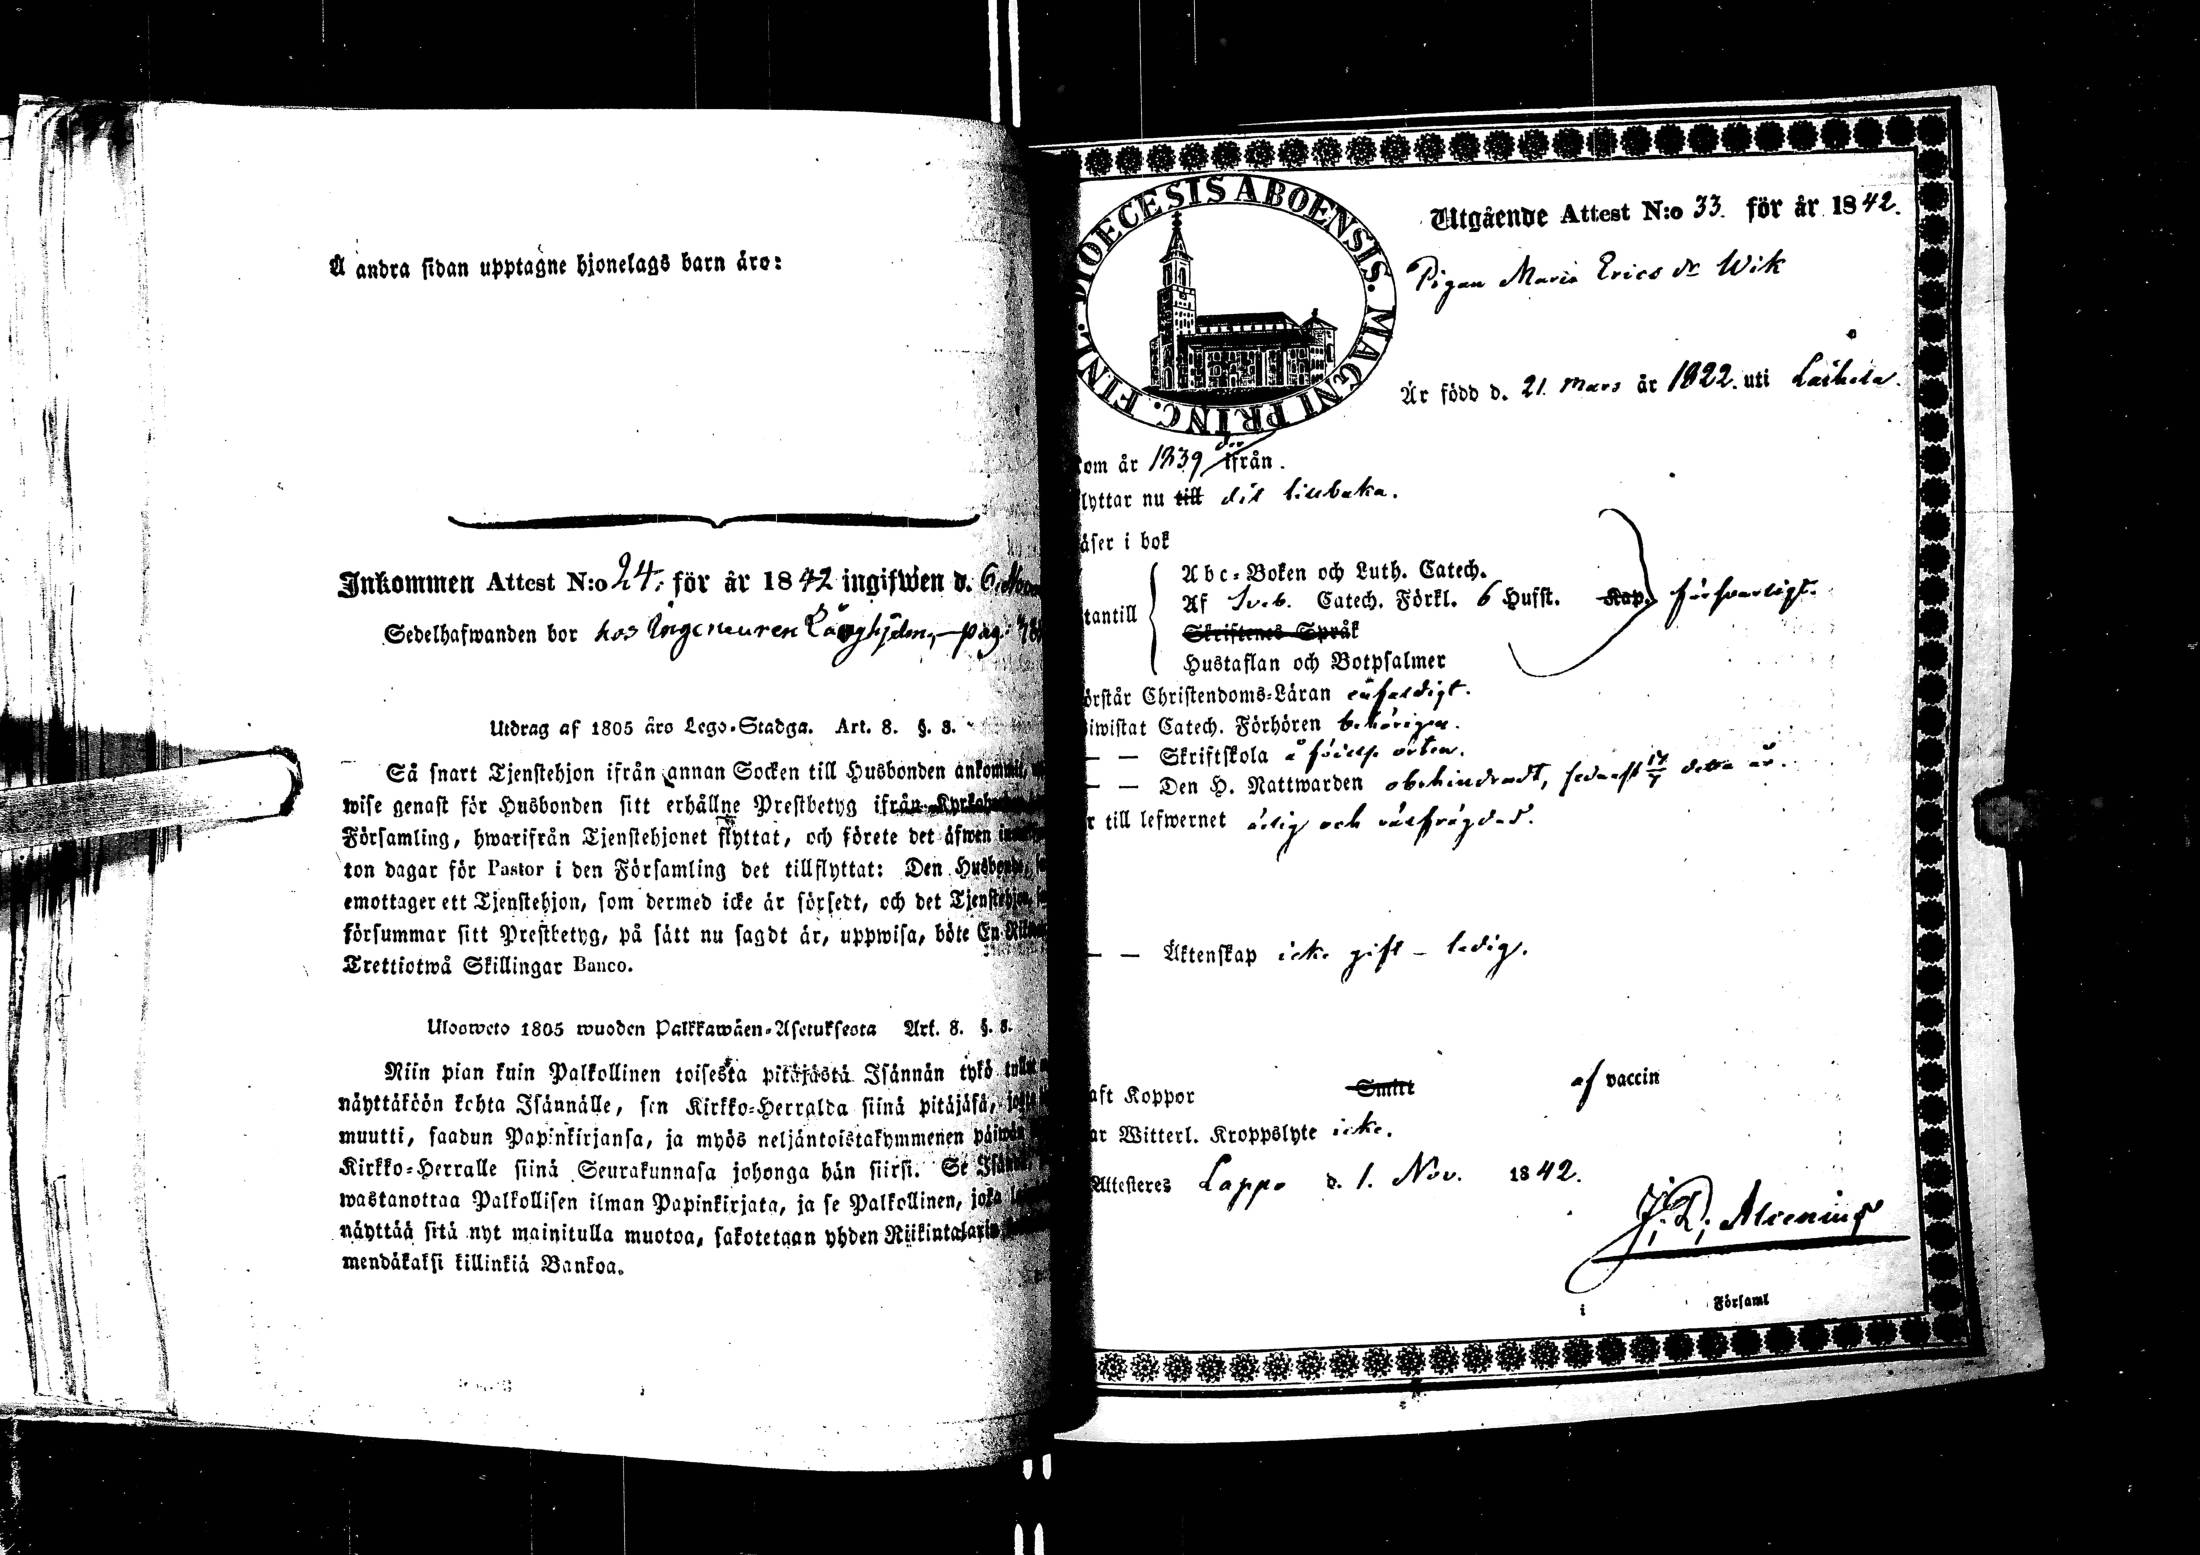 Å andra sidan upptagne hjonelags barn äro:
Inkommen Attest N:o 24. för år 1842 ingifwen d. 6.
Sedelhafwanden bor hos Ingenieuren Långhjelm, — pag:
Utdrag af 1805 års Lego-Stadga. Art. 8. §. 8.
Så snart Tjenstehjon ifrån annan Socken till Husbonden ankommit,
wise genast för Husbonden sitt erhållne Prestbetyg ifrån
Församling, hwarifrån Tjenstehjonet flyttat, och förete det äfwen
ton dagar för Pastor i den Församling det tillflyttat: Den Husbonde,
emottager ett Tjenstehjon, som dermed icke är försedt, och det Tjenstehjon,
försummar sitt Prestbetyg, på sätt nu sagdt är, uppwisa, böte En
Trettiotwå Skillingar Banco.
Ulosweto 1805 wuoden Palkkawäen-Asetuksesta Art. 8. §. 8.
Niin pian kuin Palkollinen toisesta pitäjästä Isännän tykö
näyttäköön kohta Isännälle, sen Kirkko-Herralda siinä pitäjäsä,
muutti, saadun Papinkirjansa, ja myös neljäntoistakymmenen päiwän
Kirkko-Herralle siinä Seurakunnasa johonga hän siirsi. Se
wastanottaa Palkollisen ilman Papinkirjata, ja se Palkollinen, joka
näyttää sitä nyt mainitulla muotoa, sakotetaan yhden Riikintalarin
mendäkaksi killinkiä Bankoa.
DIOECESIS ABOENSIS. MAGNI PRINC. FINL.
Utgående Attest N:o 33. för år 1842.
Pigan Maria Erics dr Wik
Är född d. 21. Mars år 1822. uti Laihela.
om år 1839 der ifrån.
lyttar nu till dit tillbaka.
äser i bok
tantill
Abc-Boken och Luth. Catech.
Af Sveb. Catech. Förkl. 6 Hufst. Kap. försvarligt.
Skriftenes Språk
Hustaflan och Botpsalmer
örstår Christendoms-Läran enfaldigt.
iwistat Catech. Förhören behörigen.
— — Skriftskola å födelse orten.
— — Den H. Nattwarden obehindradt, sednast 17/7 detta år.
r till lefwernet ärlig och välfrägdad.
— — Äktenskap icke gift – ledig.
aft Koppor Smitt af vaccin
ar Witterl. Kroppslyte icke.
Attesteres Lappo d. 1. Nov. 1842.
J. R. Alcenius
i Församl